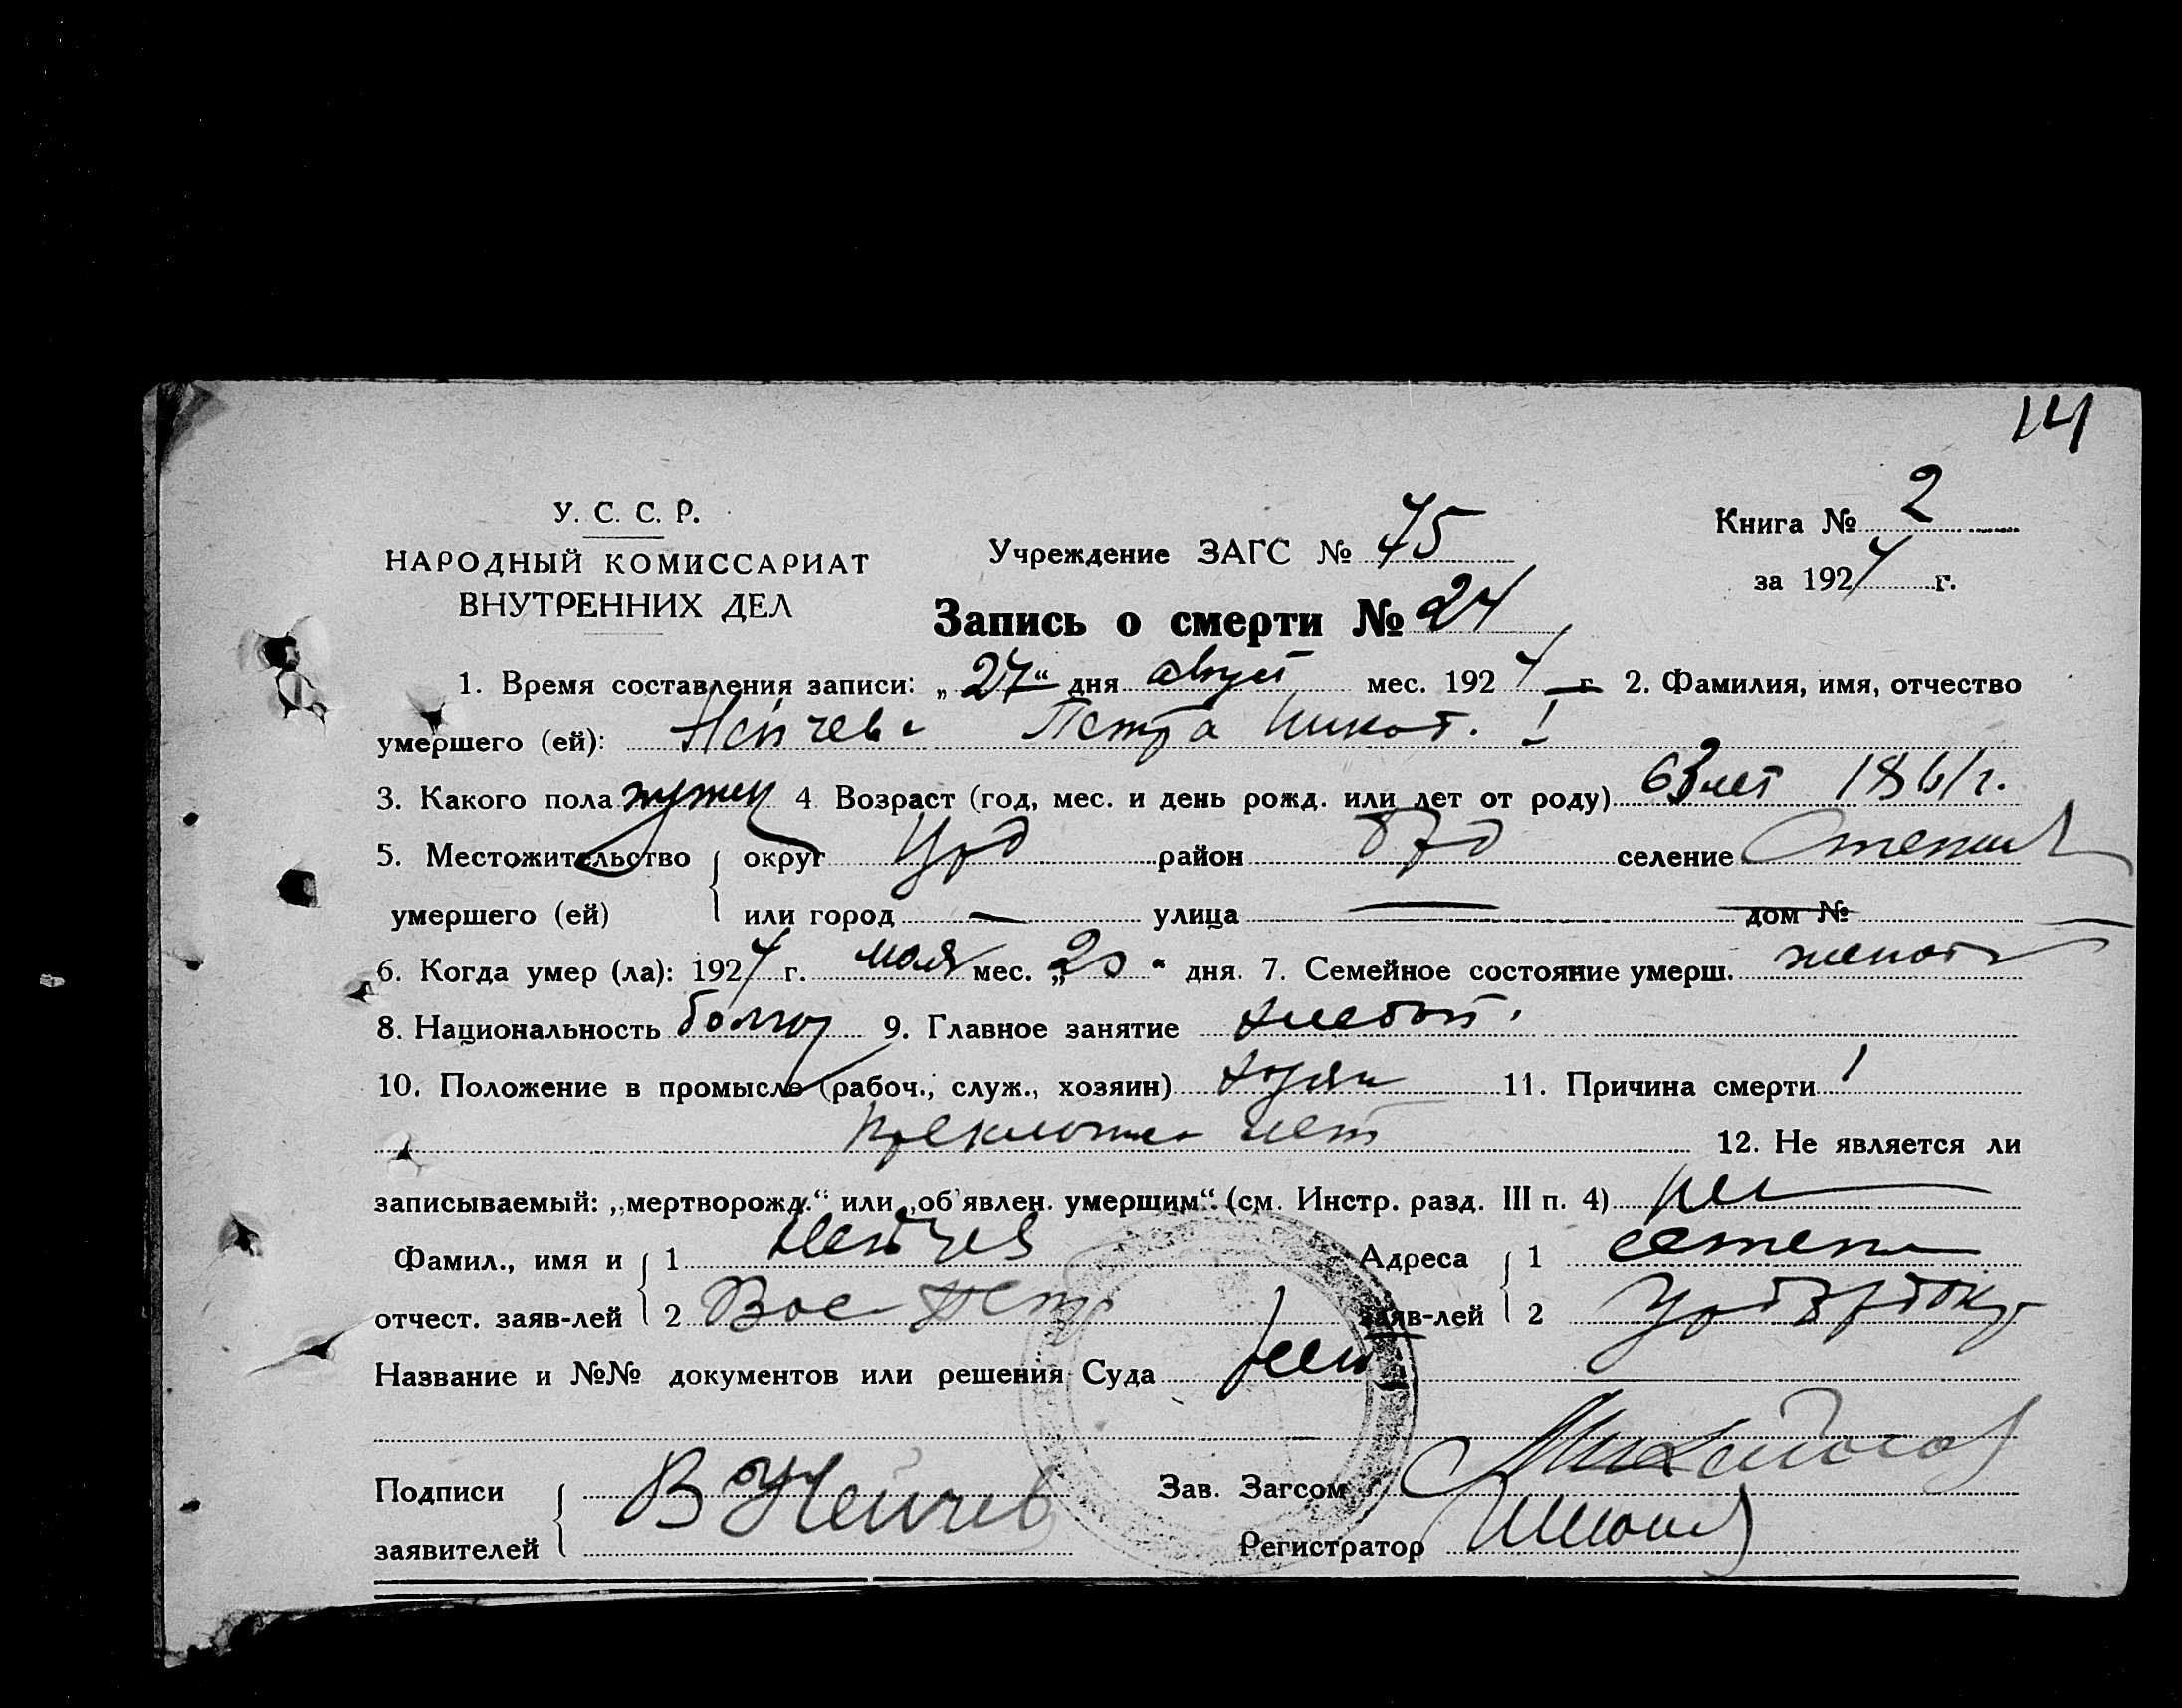 14
У. С. С. Р.
НАРОДНЫЙ КОМИССАРИАТ
ВНУТРЕННИХ ДЕЛ
Учреждение ЗАГС № 75
Книга № 2
за 1924 г.
Запись о смерти № 24
1. Время составления записи: „27“ дня август мес. 1924 г. 2. Фамилия, имя, отчество
умершего (ей): Нейчева Петра Никол.
3. Какого пола мужск 4 Возраст (год, мес. и день рожд. или лет от роду) 63 лет 1861 г.
5. Местожительство округ район селение
умершего (ей) или город — улица — дом № —
6. Когда умер (ла): 1924 г. мая мес. „20“ дня. 7. Семейное состояние умерш. женат
8. Национальность болгар 9. Главное занятие хлебоп.
10. Положение в промысле (рабоч., служ., хозяин) хозяин 11. Причина смерти
лет 12. Не является ли
записываемый: „мертворожд.“ или „об'явлен. умершим“ (см. Инстр. разд. III п. 4) нет
Фамил., имя и 1 Нейчев Адреса 1
отчест. заяв-лей 2 Вас Петр заяв-лей 2
Название и №№ документов или решения Суда
Подписи В Нейчев Зав. Загсом
заявителей Регистратор